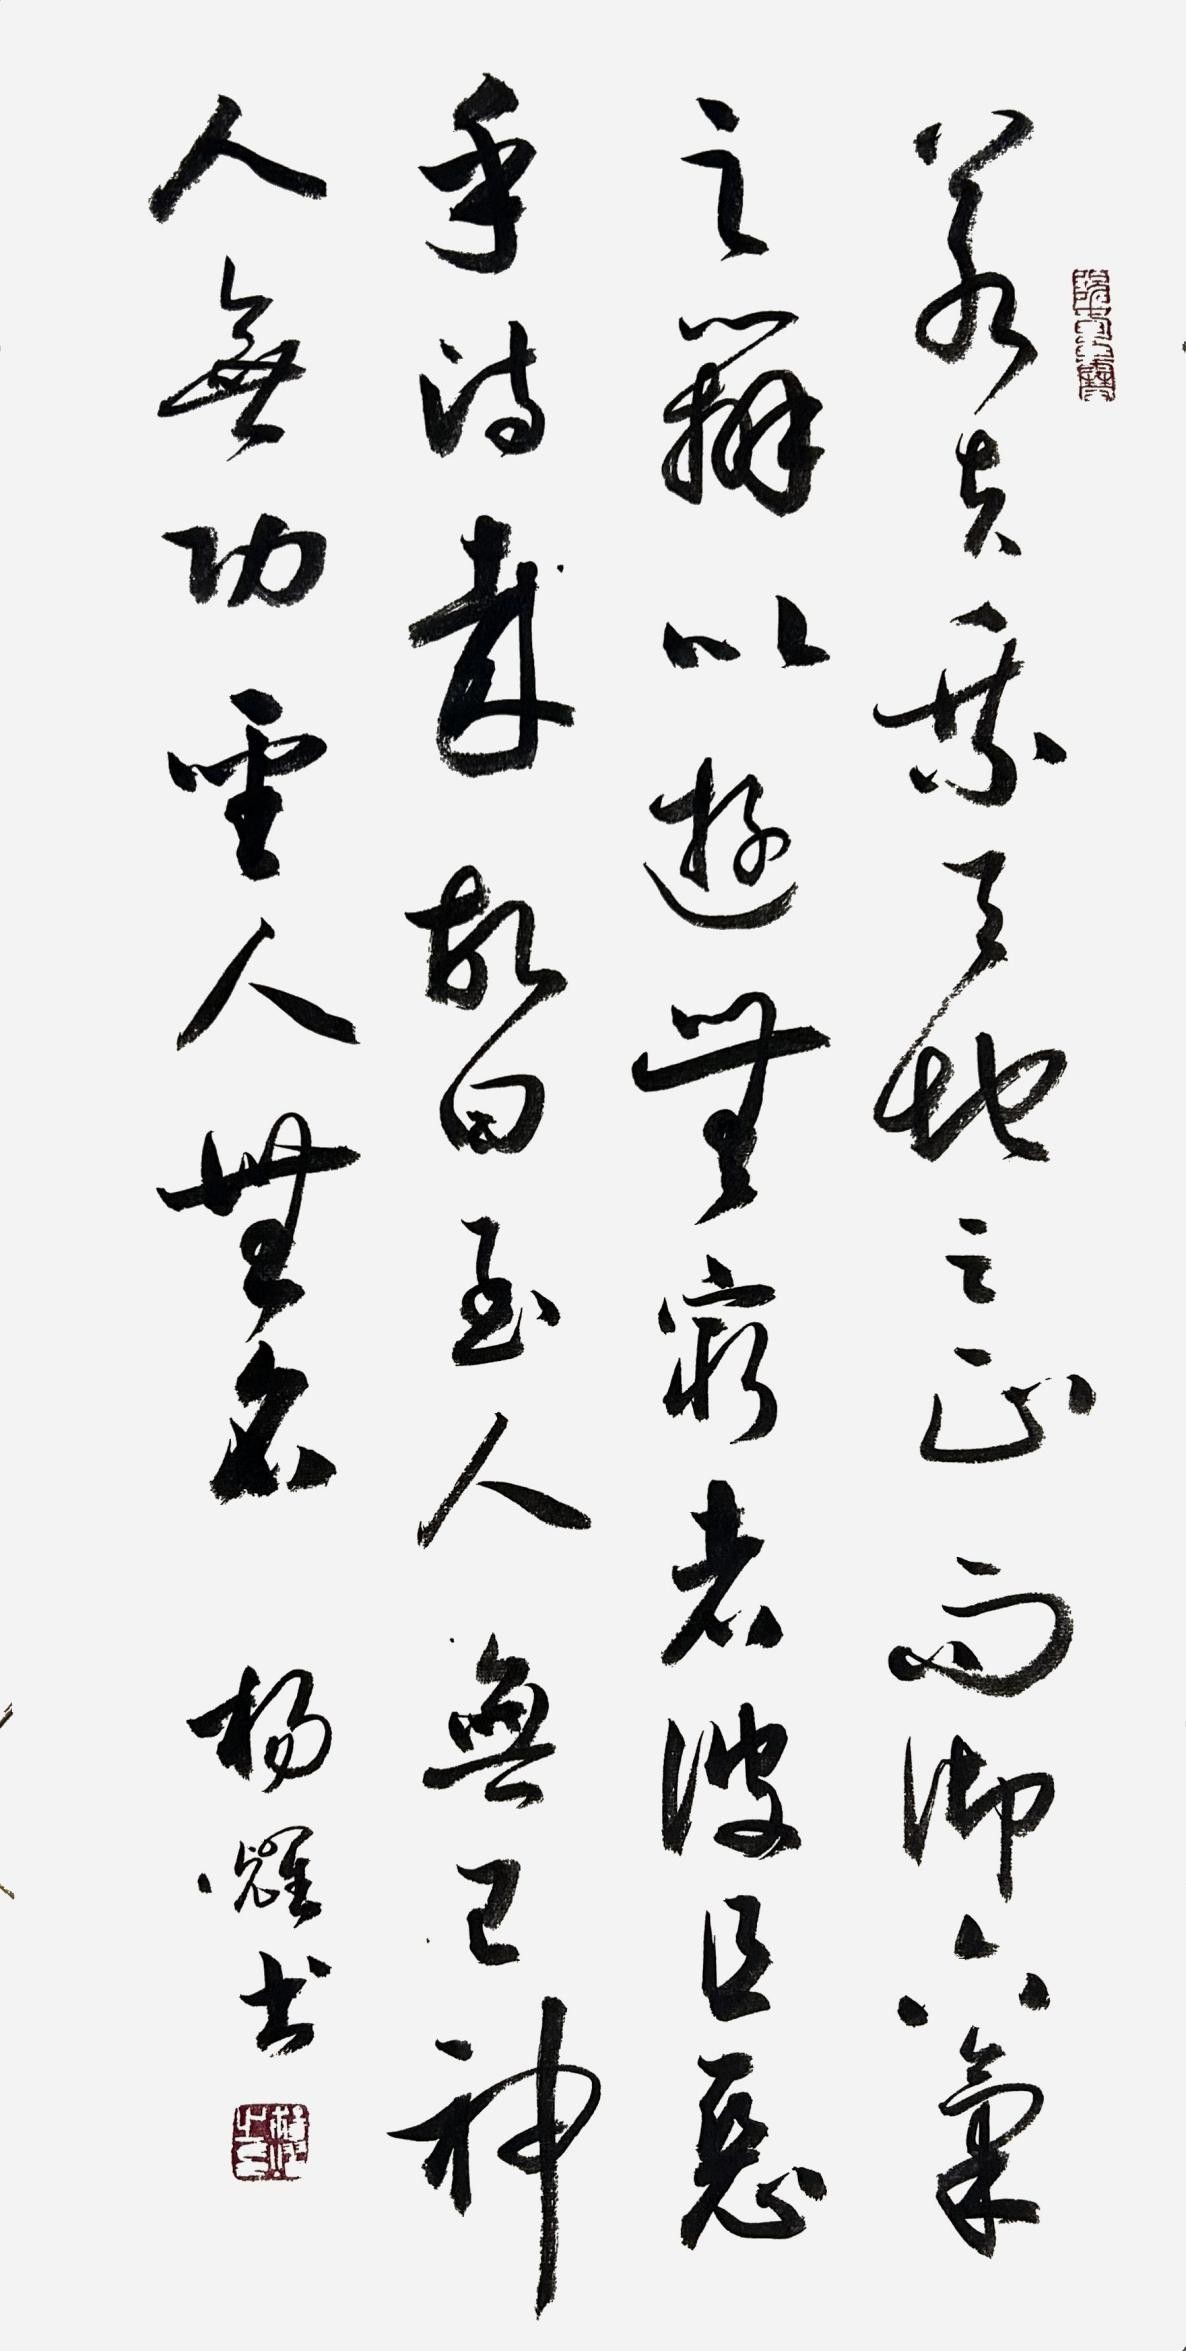 若夫乘天地之正而御六氣
之辯以遊無窮者彼且惡
乎待哉故曰至人無己神
人無功聖人無名 楊耀書